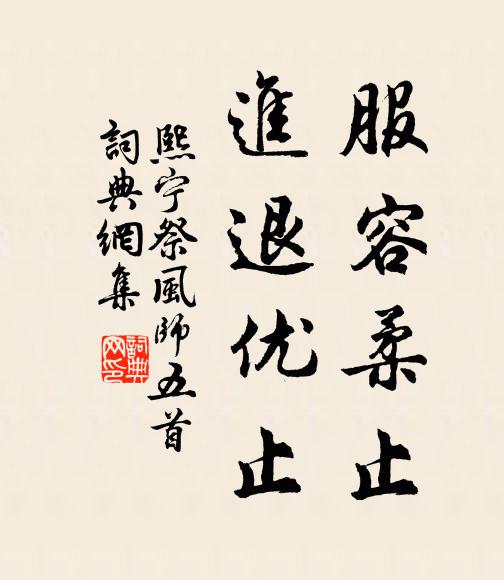 服容柔止
進退优止
熙宁祭風師五首
詞典網集
詞典网印